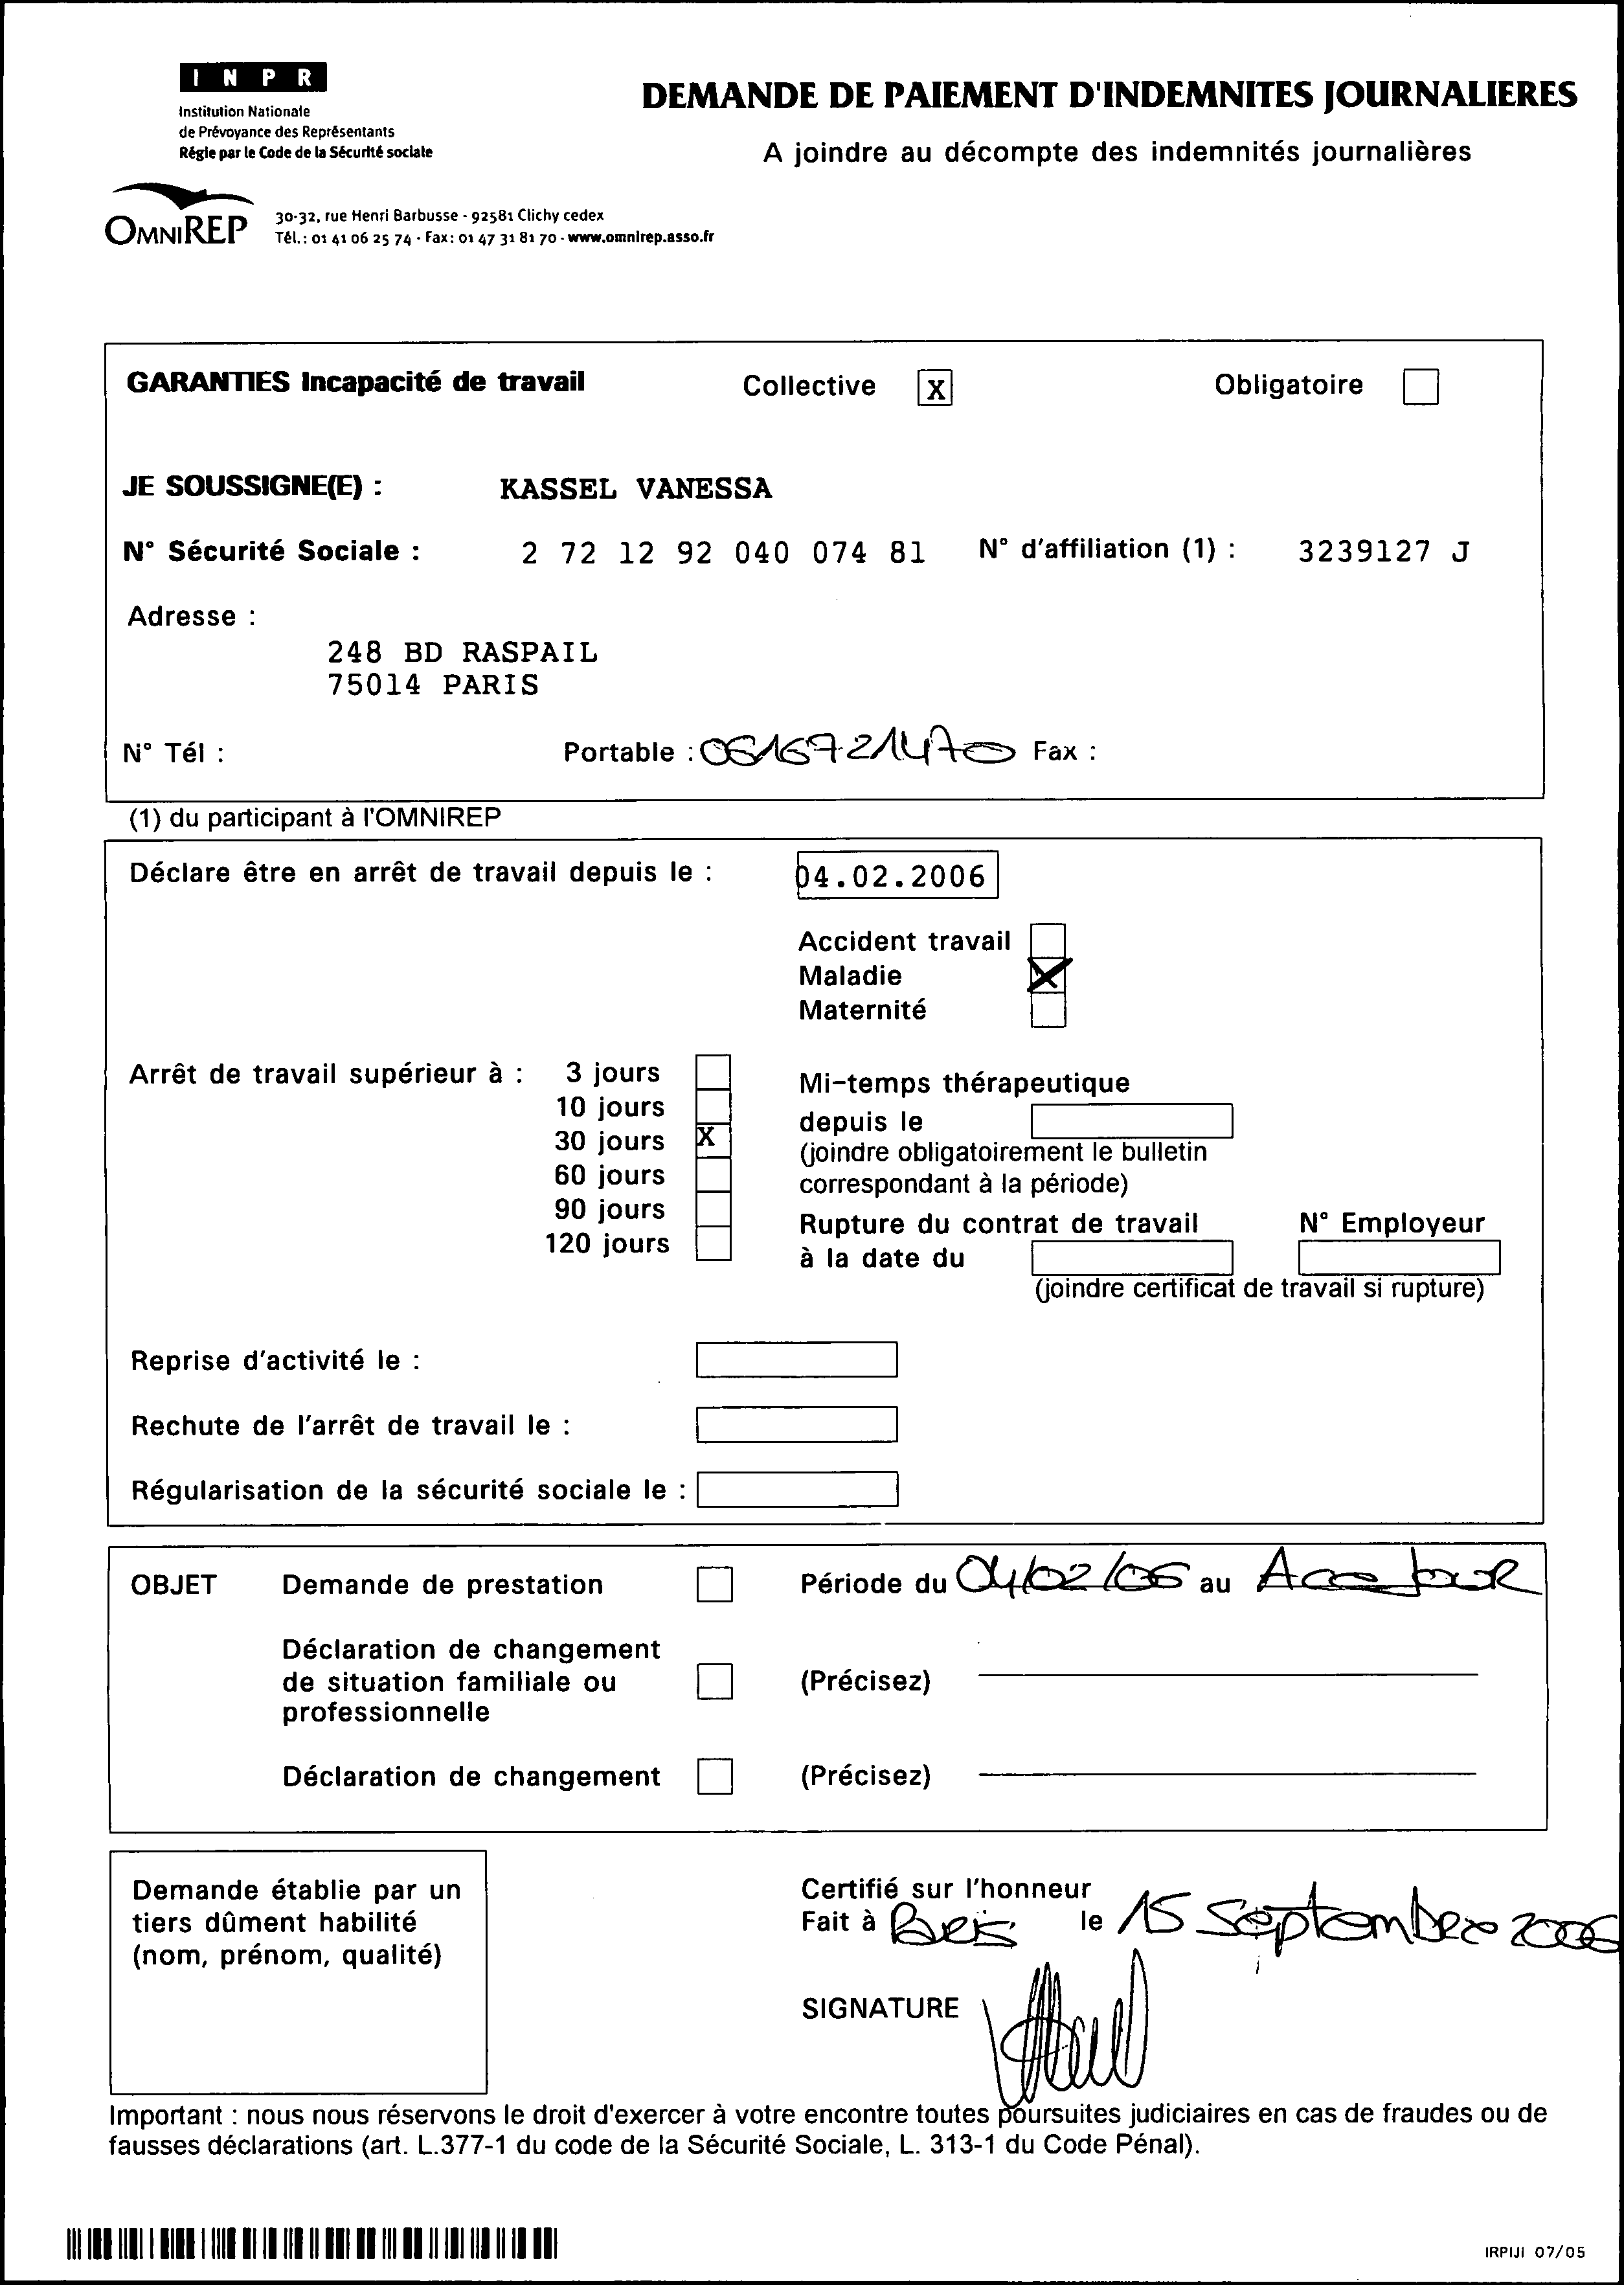 INPR
Institution Nationale
de Prévoyance des Représentants
Régie par le Code de la Sécurité sociale
DEMANDE DE PAIEMENT D'INDEMNITES JOURNALIERES
A joindre au décompte des indemnités journalières
OMNIREP
30-32, rue Henri Barbusse - 92581 Clichy cedex
Tél.: 01 41 06 25 74 - Fax: 01 47 31 81 70 - www.omnirep.asso.fr
GARANTIES Incapacité de travail Collective X Obligatoire
JE SOUSSIGNE(E) : KASSEL VANESSA
N° Sécurité Sociale : 2 72 12 92 040 074 81 N° d'affiliation (1) : 3239127 J
Adresse :
248 BD RASPAIL
75014 PARIS
N° Tél : Portable : 0616721470 Fax :
(1) du participant à l'OMNIREP
Déclare être en arrêt de travail depuis le : 04.02.2006
Accident travail
Maladie X
Maternité
Arrêt de travail supérieur à : 3 jours
10 jours
30 jours X
60 jours
90 jours
120 jours
Mi-temps thérapeutique
depuis le
(joindre obligatoirement le bulletin
correspondant à la période)
Rupture du contrat de travail N° Employeur
à la date du
(joindre certificat de travail si rupture)
Reprise d'activité le :
Rechute de l'arrêt de travail le :
Régularisation de la sécurité sociale le :
OBJET Demande de prestation Période du 04/02/06 au Jour
Déclaration de changement
de situation familiale ou
professionnelle
(Précisez)
Déclaration de changement (Précisez)
Demande établie par un
tiers dûment habilité
(nom, prénom, qualité)
Certifié sur l'honneur
Fait à Paris le 15 Septembre 2006
SIGNATURE
Important : nous nous réservons le droit d'exercer à votre encontre toutes poursuites judiciaires en cas de fraudes ou de
fausses déclarations (art. L.377-1 du code de la Sécurité Sociale, L. 313-1 du Code Pénal).
IRPIJI 07/05